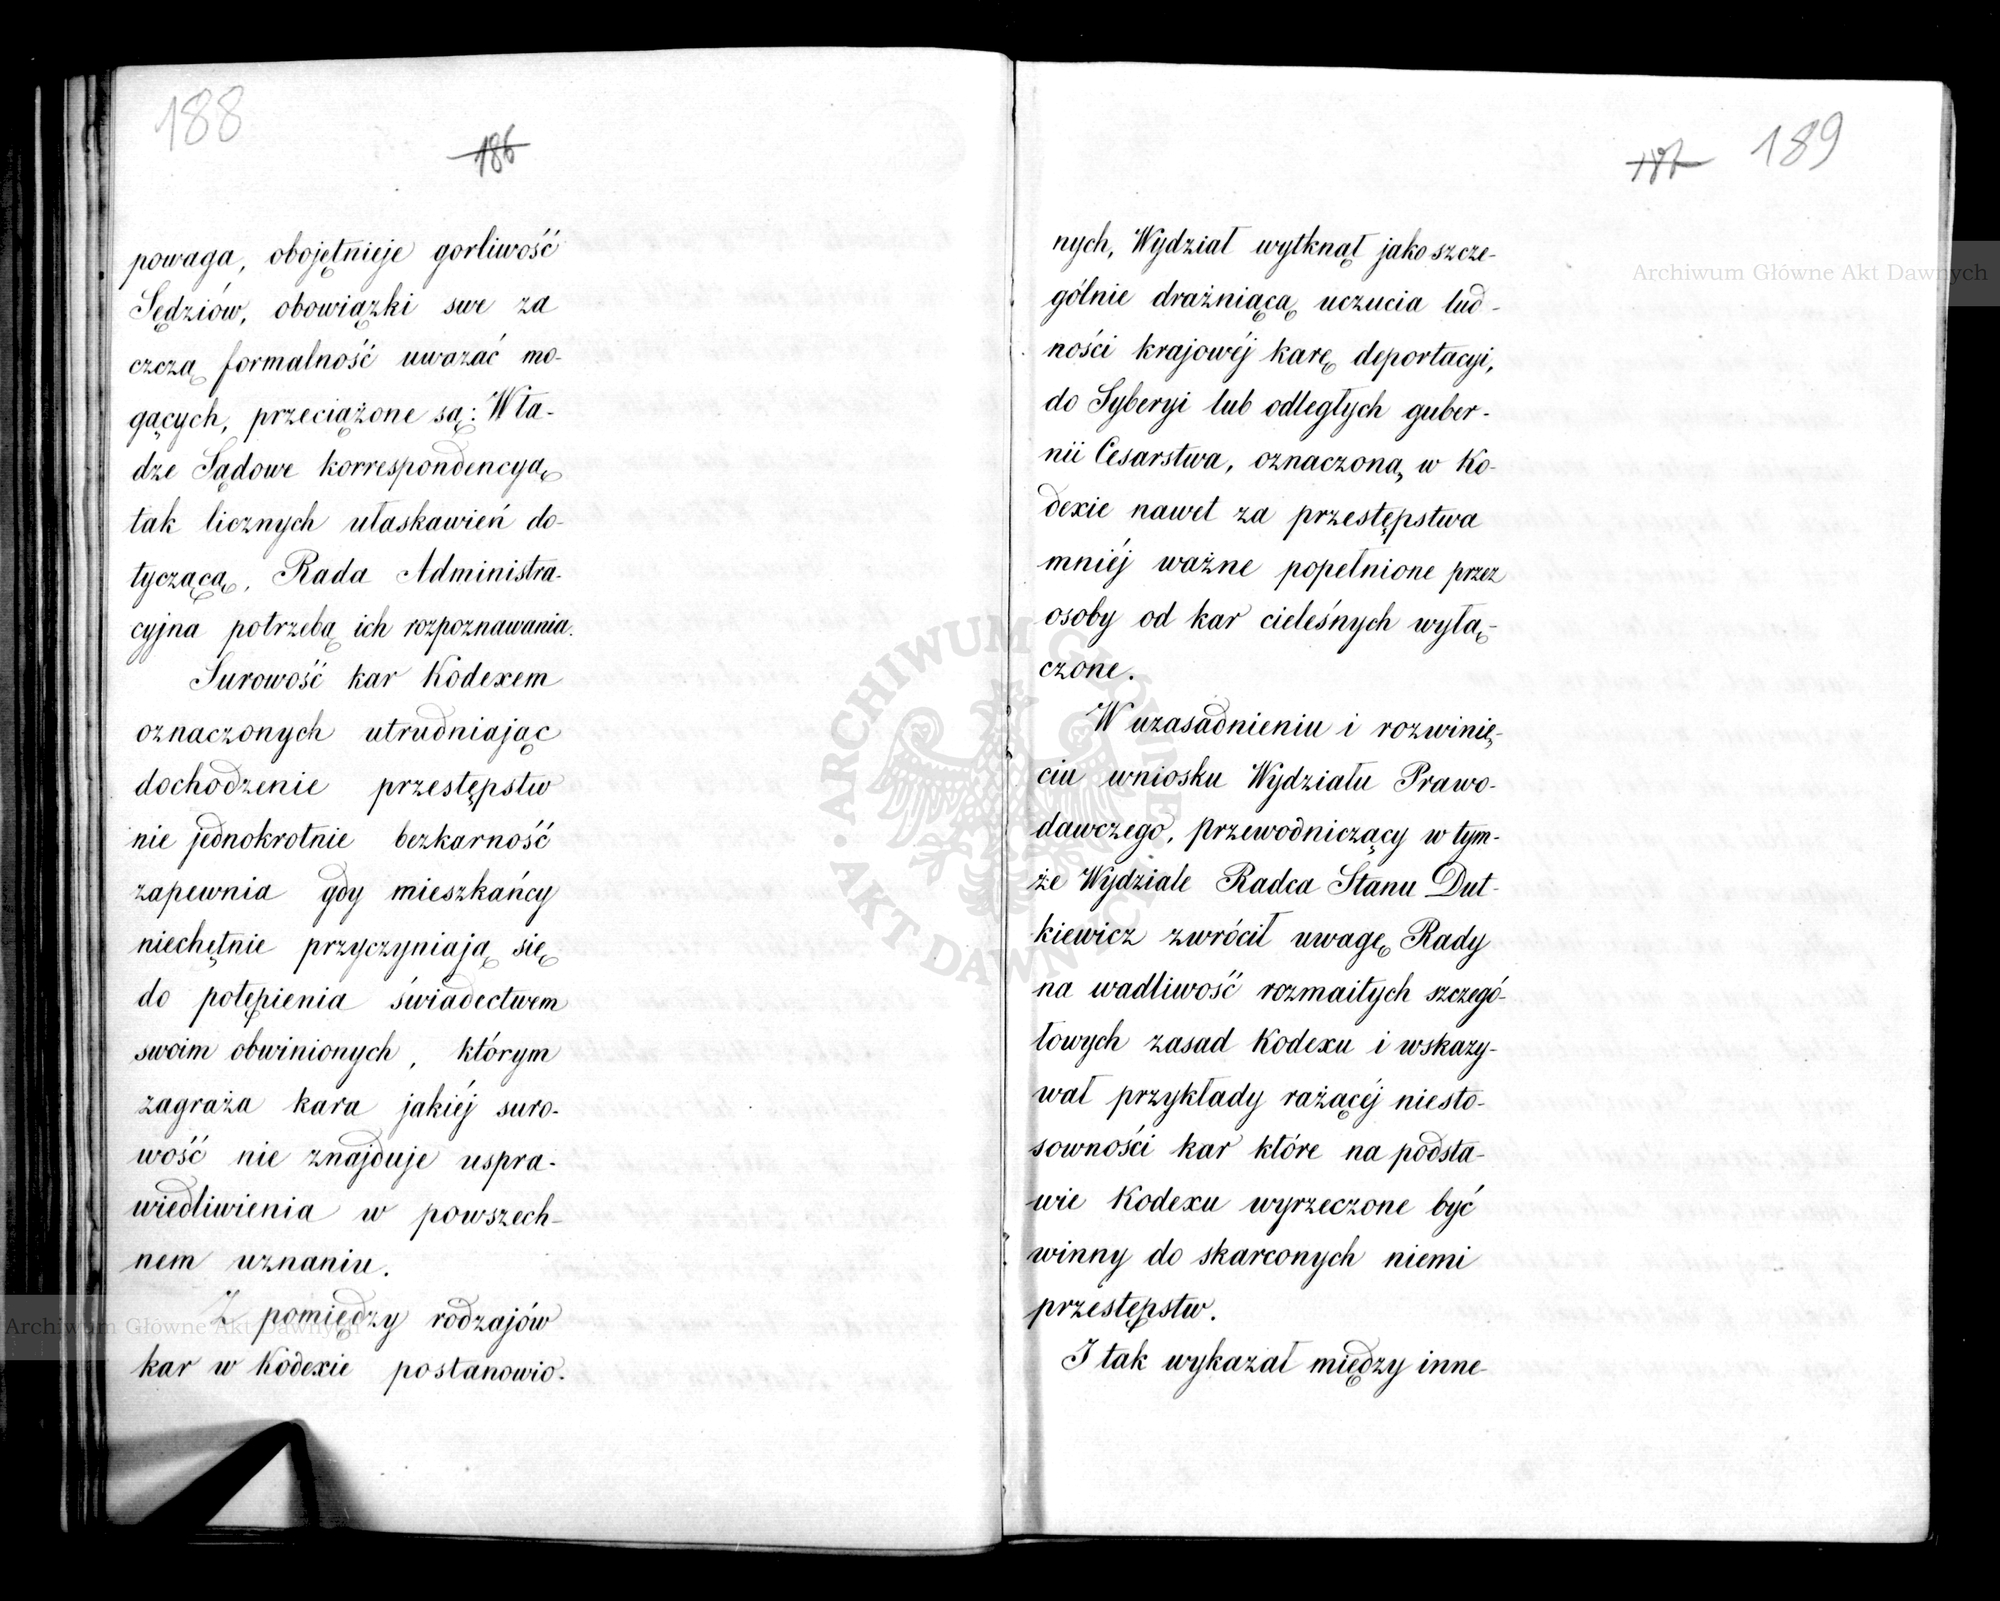 188
186
powaga, obojętnieje gorliwość
Sędziów, obowiązki swe za
czczą formalność uważać mo-
gących, przeciążone są: Wła-
dze Sądowe korrespondencyą
tak licznych ułaskawień do-
tyczącą, Rada Administra-
cyjna potrzebą ich rozpoznawania.
Surowość kar Kodexem
oznaczonych utrudniając
dochodzenie przestępstw
nie jednokrotnie bezkarność
zapewnia gdy mieszkańcy
niechętnie przyczyniają się
do potępienia świadectwem
swoim obwinionych, którym
zagraża kara jakiéj suro-
wość nie znajduje uspra-
wiedliwienia w powszech-
nem uznaniu.
Z pomiędzy rodzajów
kar w Kodexie postanowio-
187 189
nych, Wydział wytknął jako szcze-
gólnie drażniącą uczucia lud-
ności krajowéj karę deportacyi,
do Syberyi lub odległych guber-
nii Cesarstwa, oznaczoną w Ko-
dexie nawet za przestępstwa
mniéj ważne popełnione przez
osoby od kar cieleśnych wyłą-
czone.
W uzasadnieniu i rozwinię-
ciu wniosku Wydziału Prawo-
dawczego, przewodniczący w tym-
że Wydziale Radca Stanu Dut-
kiewicz zwrócił uwagę Rady
na wadliwość rozmaitych szczegó-
łowych zasad Kodexu i wskazy-
wał przykłady rażącéj niesto-
sowności kar które na podsta-
wie Kodexu wyrzeczone być
winny do skarconych niemi
przestępstw.
I tak wykazał między inne-
Archiwum Główne Akt Dawnych
Archiwum Główne Akt Dawnych
ARCHIWUM GŁÓWNE AKT DAWNYCH